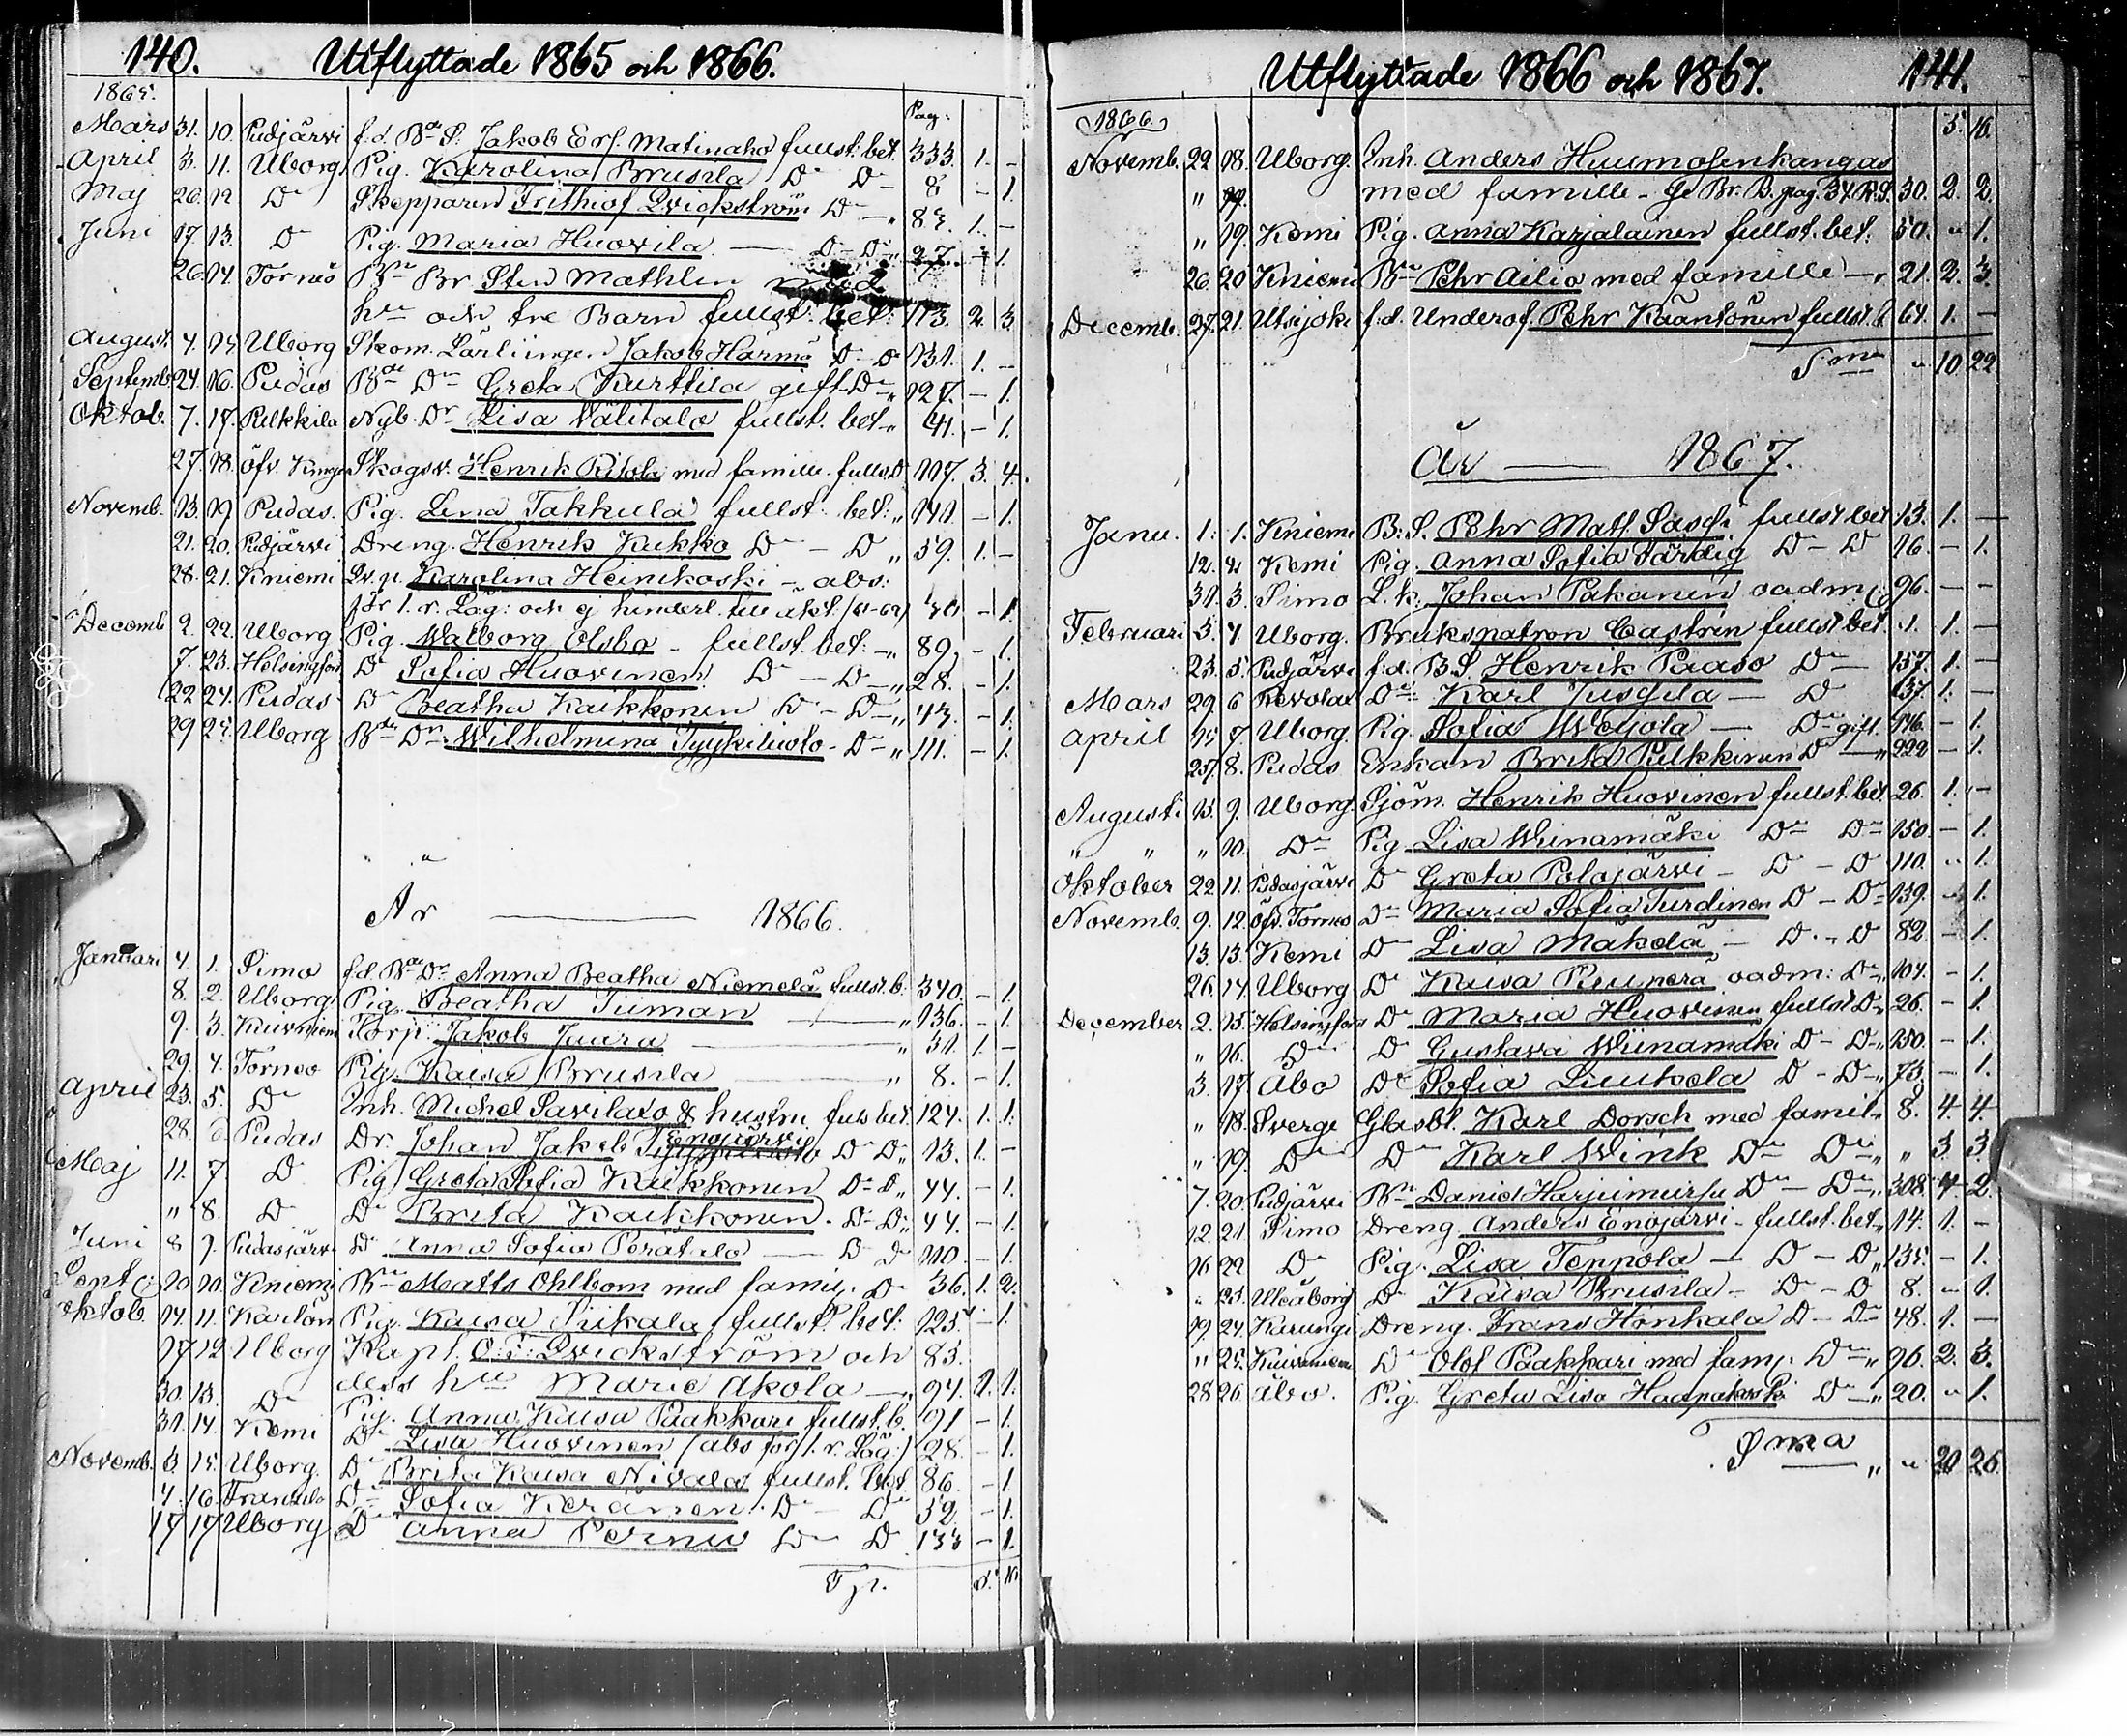 140. Utflyttade 1865 och 1866.
1865. Pag:
Mars 31. 10. Pudjärvi f.d. Bde S. Jakob Ers. Matinaho fullst. bet. 333. 1. –
April 3. 11. Uborg Pig. Karolina Brusila Do Do – 8 – 1.
Maj 26. 12 Do Skepparen Frithiof Qvickström Do – " 83. 1. –
Juni 17. 13. Do Pig. Maria Huovila — Do Do " 27. – 1.
26. 14. Torneå Bde Br Sten Mathlin med
hu och tre Barn fullst. bet: 173. 2. 3.
August. 4. 15 Uborg Skom. Lärlinge Jakob Härmä Do Do 131. 1. –
Septemb. 24. 16. Pudas Bde Dr Greta Kurttila gift Do " 127. – 1.
Oktob. 7. 17. Pulkkila Nyb. Dr Lisa Välitalo fullst. bet " 41. – 1.
27. 18. Öfv. Kinge Skogsv. Henrik Ritola med famille fulls. D 117. 3. 4.
Novemb. 13. 19 Pudas. Pig. Lena Takkula fullst. bet: " 141 – 1.
21. 20. Pudjärvi Dreng. Henrik Kukko Do – Do " 59. 1. –
28. 21. Kniemi Qv.p. Karolina Heinikoski – abs:
för l. r. Läg: och ej hinderl. till äkt. – 1.
Decemb 2. 22. Uborg Pig. Walborg Olsbo – fullst. bet: – " 89. – 1.
7. 23. Helsingfors Do Sofia Huovinen Do – Do – " 28. – 1.
22 24. Pudas Do Beatha Kaikkonen Do – Do – " 43. – 1.
29 25. Uborg Bde Dr. Wilhelmina Tyykiluoto – Do – " 111. – 1.
År — 1866.
Januari 4. 1. Simo f.d. Bde Dr Anna Beatha Niemelä fullst. b. 340. – 1.
8. 2. Uborg Pig. Beatha Tiiman — " 136. – 1.
9. 3. Kuivaniemi Torp. Jakob Juura — " 31. 1. –
29. 4. Torneo Pig. Kaisa Brusila — " 8. – 1.
April 23. 5. Do Inh. Michel Savilaxo & hustru fuls bet. 124. 1. 1.
28. 6 Pudas Dr. Johan Jakob Engjärvi Do Do " 13. 1. –
Maj 11. 7. Do Pig Greta Sofia Kaikkonen Do Do " 44. – 1.
" 8. Do Do Brita Kaikkonen. Do Do " 44. – 1.
Juni 8 9. Pudasjärvi Do Anna Sofia Perätalo — Do Do 110. – 1.
Sept. 20. 10. Kniemi Bde Matts Ohlbom med famil. Do 36. 1. 2.
Oktob. 14. 11. Karlön Pig. Kaisa Siikala fullst. bet: 125. – 1.
17 12 Uborg Kapt. O. F. Qvickström och 83.
dess hu Marie Akola — " 94. 1. 1.
30. 13. Do Pig. Anna Kaisa Paakkari fullst. b. 91 – 1.
31. 14. Kemi Do Lisa Huovinen (abs för l. r. Läg.) 28. – 1.
Novemb. 3. 15. Uborg. Do Brita Kaisa Nivala fullst. bet 86. – 1.
4. 16. Frantsila Do Sofia Keränen. Do – Do 52. – 1.
17 17 Uborg Do Anna Pernu Do Do 133 – 1.
Tr.
Utflyttade 1866 och 1867. 141.
1866. 5. 16.
Novemb. 22 18. Uborg. Inh. Anders Huumosenkangas
" med famille – Se Br. B. pag. 34 R.S. 30. 2. 2.
" 19. Kemi Pig. Anna Karjalainen fullst. bet: 50. " 1.
26. 20 Kniemi Bde Pehr Ailio med famille — 21. 2. 3.
Decemb. 27. 21. Utsjoki f.d. Underof. Pehr Kääntönen fullst. b 64. 1. –
Sma " 10 22
År — 1867.
Janu. 1. 1. Kniemi B. S. Pehr Math. Sassi fullst bet 13. 1. –
12. 2. Kemi Pig. Anna Sofia Färdig Do – Do 16. – 1.
31. 3. Simo L. k. Johan Pakanen oadm 96. – –
Februari 5. 4. Uborg. Bruksnatron Castrén fullst bet. 1. 1. –
23. 5. Pudjärvi f.d. B. S. Henrik Paaso Do — 157. 1. –
Mars 29. 6 Revolax Do Karl Jussila — Do 137. 1. –
April 15 7. Uborg. Pig. Sofia Weijola — Do gift. 116. – 1.
25. 8. Pudas Enkan Brita Pulkkinen Do — " 222 – 1.
Augusti 13. 9. Uborg. Sjöm. Henrik Huovinen fullst. bet. 26. 1. –
" " " 10. Do Pig. Lisa Wiinamäki Do Do 150 – 1.
Oktober 22 11. Pudasjärvi Do Greta Polojärvi – Do – Do 110. " 1.
Novemb. 9. 12. Öfv. Torneo Do Maria Sofia Turdinen Do – Do 139. " 1.
13. 13. Kemi Do Lisa Mäkelä – Do – Do 82. – 1.
26. 14. Uborg Do Kaisa Reunera oadm: Do " 104. – 1.
December 2. 15. Helsingfors Do Maria Huovinen fullst Do " 26. – 1.
" 16. Do Do Gustava Wiinamäki Do – Do " 150. – 1.
3. 17. Åbo Do Sofia Luukela Do – Do " 73. – 1.
" 18. Sverge Glasbl. Karl Dorsch med famil " 8. 4. 4.
" 19. Do Do Karl Wink Do Do " " 3. 3.
7. 20. Pudjärvi Bde Daniel Harjumursu Do – Do " 308. 4. 2.
12. 21. Simo Dreng. Anders Engjärvi – fullst. bet. " 14. 1. –
16 22 Do Pig. Lisa Teppola – Do – Do " 135. – 1.
" 23. Uleåborg Do Kaisa Brusila – Do – Do 8. " 1.
19 24. Karungi Dreng. Frans Honkala Do – Do 48. 1. –
" 25. Kuivaniemi Do Olof Paakkari med famj. Do " 96. 2. 3.
28 26. Åbo. Pig. Greta Lisa Haapakoski Do – " 20. " 1.
Sma " " 20 26